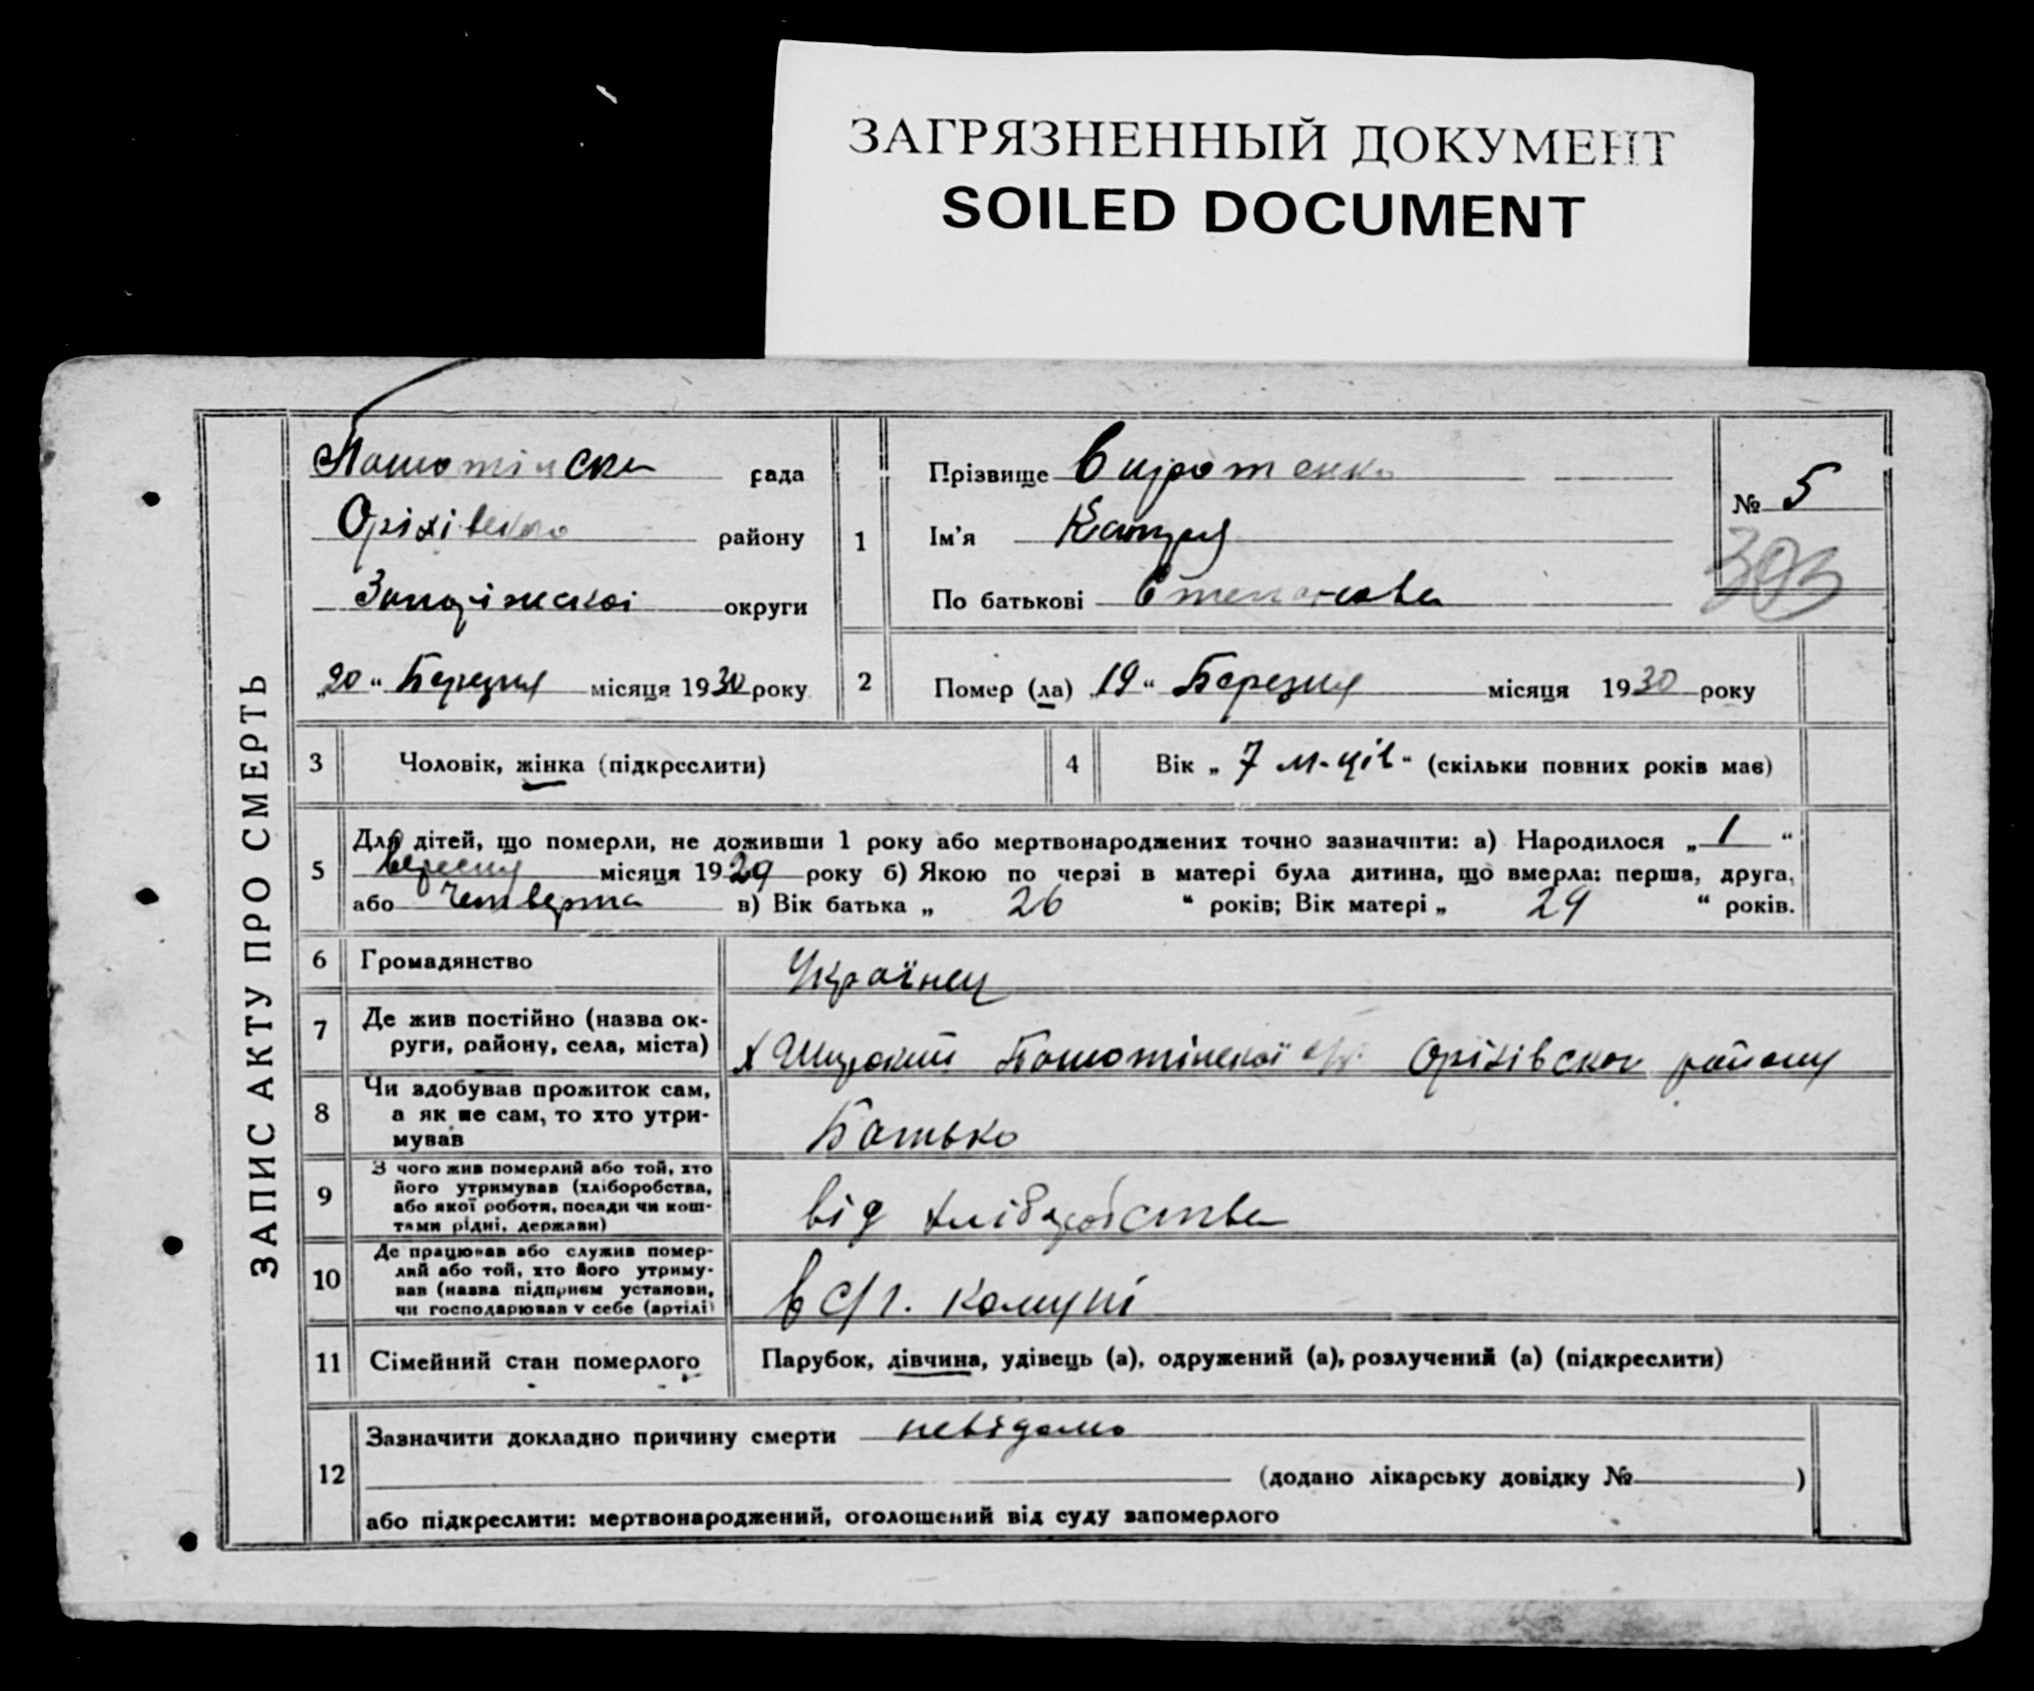 ЗАГРЯЗНЕННЫЙ ДОКУМЕНТ
SOILED DOCUMENT
ЗАПИС АКТУ ПРО СМЕРТЬ
рада
Оріхівського району
Запоріжської округи
„20“ Березня місяця 1930 року
1
Прізвище Сиротенко
Ім'я
По батькові Степановна
№ 5
393
2
Помер (ла) „19“ Березня місяця 1930 року
3 Чоловік, жінка (підкреслити)
4 Вік „7 м-ців“ (скільки повних років має)
5 Для дітей, що померли, не доживши 1 року або мертвонароджених точно зазначити: а) Народилося „1“
вересня місяця 1929 року б) Якою по черзі в матері була дитина, що вмерла: перша, друга,
або четверта в) Вік батька „26“ років; Вік матері „29“ років.
6 Громадянство Українец
7 Де жив постійно (назва ок-
руги, району, села, міста) х Широкий Оріхівског району
8 Чи здобував прожиток сам,
а як не сам, то хто утри-
мував Батько
9 З чого жив померлий або той, хто
його утримував (хліборобства,
або якої роботи, посади чи кош-
тами рідні, держави) від хліборобства
10 Де працював або служив помер-
лий або той, хто його утриму-
вав (назва підприєм установи,
чи господарював у себе (артілі) в с/г. комуні
11 Сімейний стан померлого Парубок, дівчина, удівець (а), одружений (а), розлучений (а) (підкреслити)
12 Зазначити докладно причину смерти невідомо
(додано лікарську довідку № )
або підкреслити: мертвонароджений, оголошений від суду запомерлого